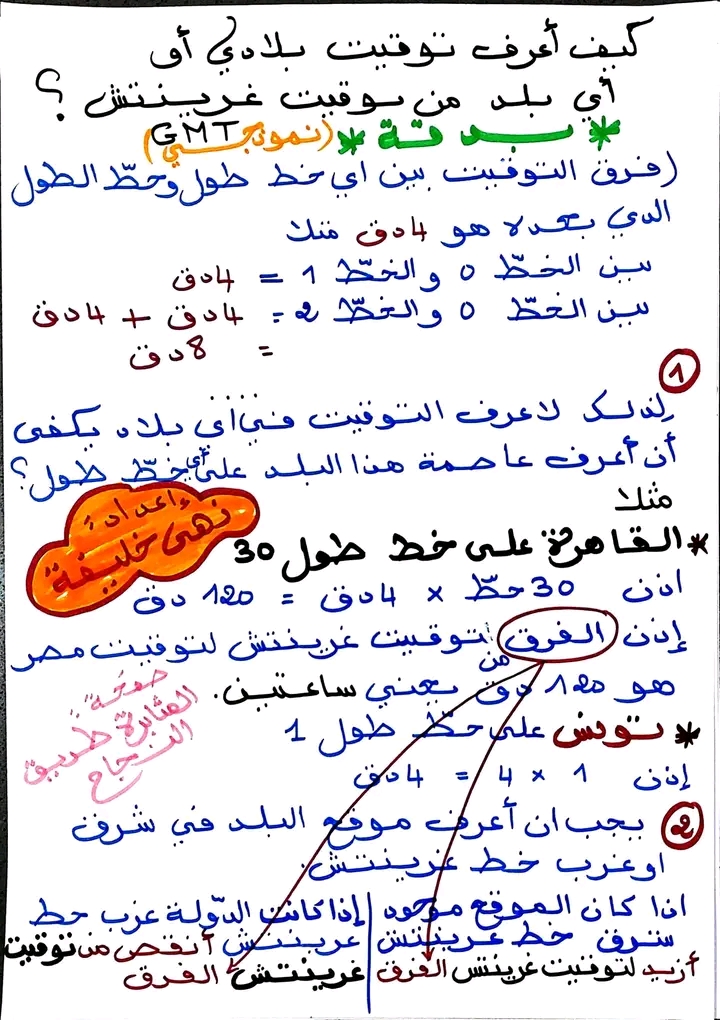 كيف أعرف توقيت بلادي أو
أي بلد من توقيت غرينتش ؟
GMT
* بدقة * (نموذجي)
(فرق التوقيت بين اي خط طول وخطّ الطول
الذي بعده هو 4دق مثلا
بين الخطّ 0 والخطّ 1 = 4دق
بين الخطّ 0 والخطّ 2 = 4دق + 4دق
= 8دق
1
لذلك لاعرف التوقيت في اي بلاد يكفي
أن أعرف عاصمة هذا البلد على أي خطّ طول؟
مثلا
إعداد:
نهى خليفة
* القاهرة على خط طول 30
اذن 30خطّ × 4دق = 120 دق
إذن الفرق من توقيت غرينتش لتوقيت مصر
هو 120 دق يعني ساعتين.
صفحة:
المثابرة طريق
النجاح
* تونس على خطّ طول 1
إذن 1 × 4 = 4دق
2 يجب ان أعرف موقع البلد في شرق
او غرب خط غرينتش.
اذا كان الموقع موجود
شرق خط غرينتش
أزيد لتوقيت غرينتش الفرق
إذا كانت الدّولة غرب خط
غرينتش أنقص من توقيت
غرينتش الفرق